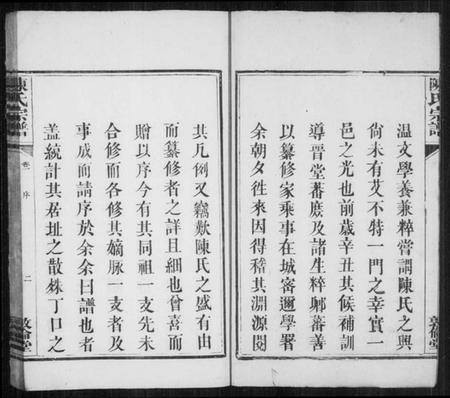 陳氏宗譜
溫文學養兼粹嘗謂陳氏之興
尚未有艾不特一門之幸實一
邑之光也前歲辛丑其候補訓
導晉堂蕃庶及諸生粹卿蕃善
以纂修家乘事在城密邇學署
余朝夕徃來因得稽其淵源閱
其凡例又竊歎陳氏之盛有由
而纂修者之詳且細也曾喜而
贈以序今有其同祖一支先未
合修而各修其嫡脉一支者及
事成而請序於余余曰譜也者
蓋統計其居址之散殊丁口之
陳氏宗譜
卷 序
二
敦倫堂